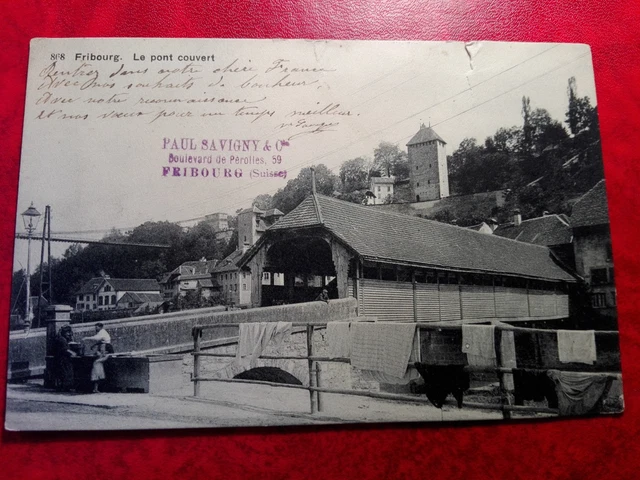 868 Fribourg. Le pont couvert
Rentrez dans notre chère France
Avec nos souhaits de bonheur,
Avec notre reconnaissance
et nos vœux pour un temps meilleur.
PAUL SAVIGNY & Cie
Boulevard de Pérolles, 59
FRIBOURG (Suisse)